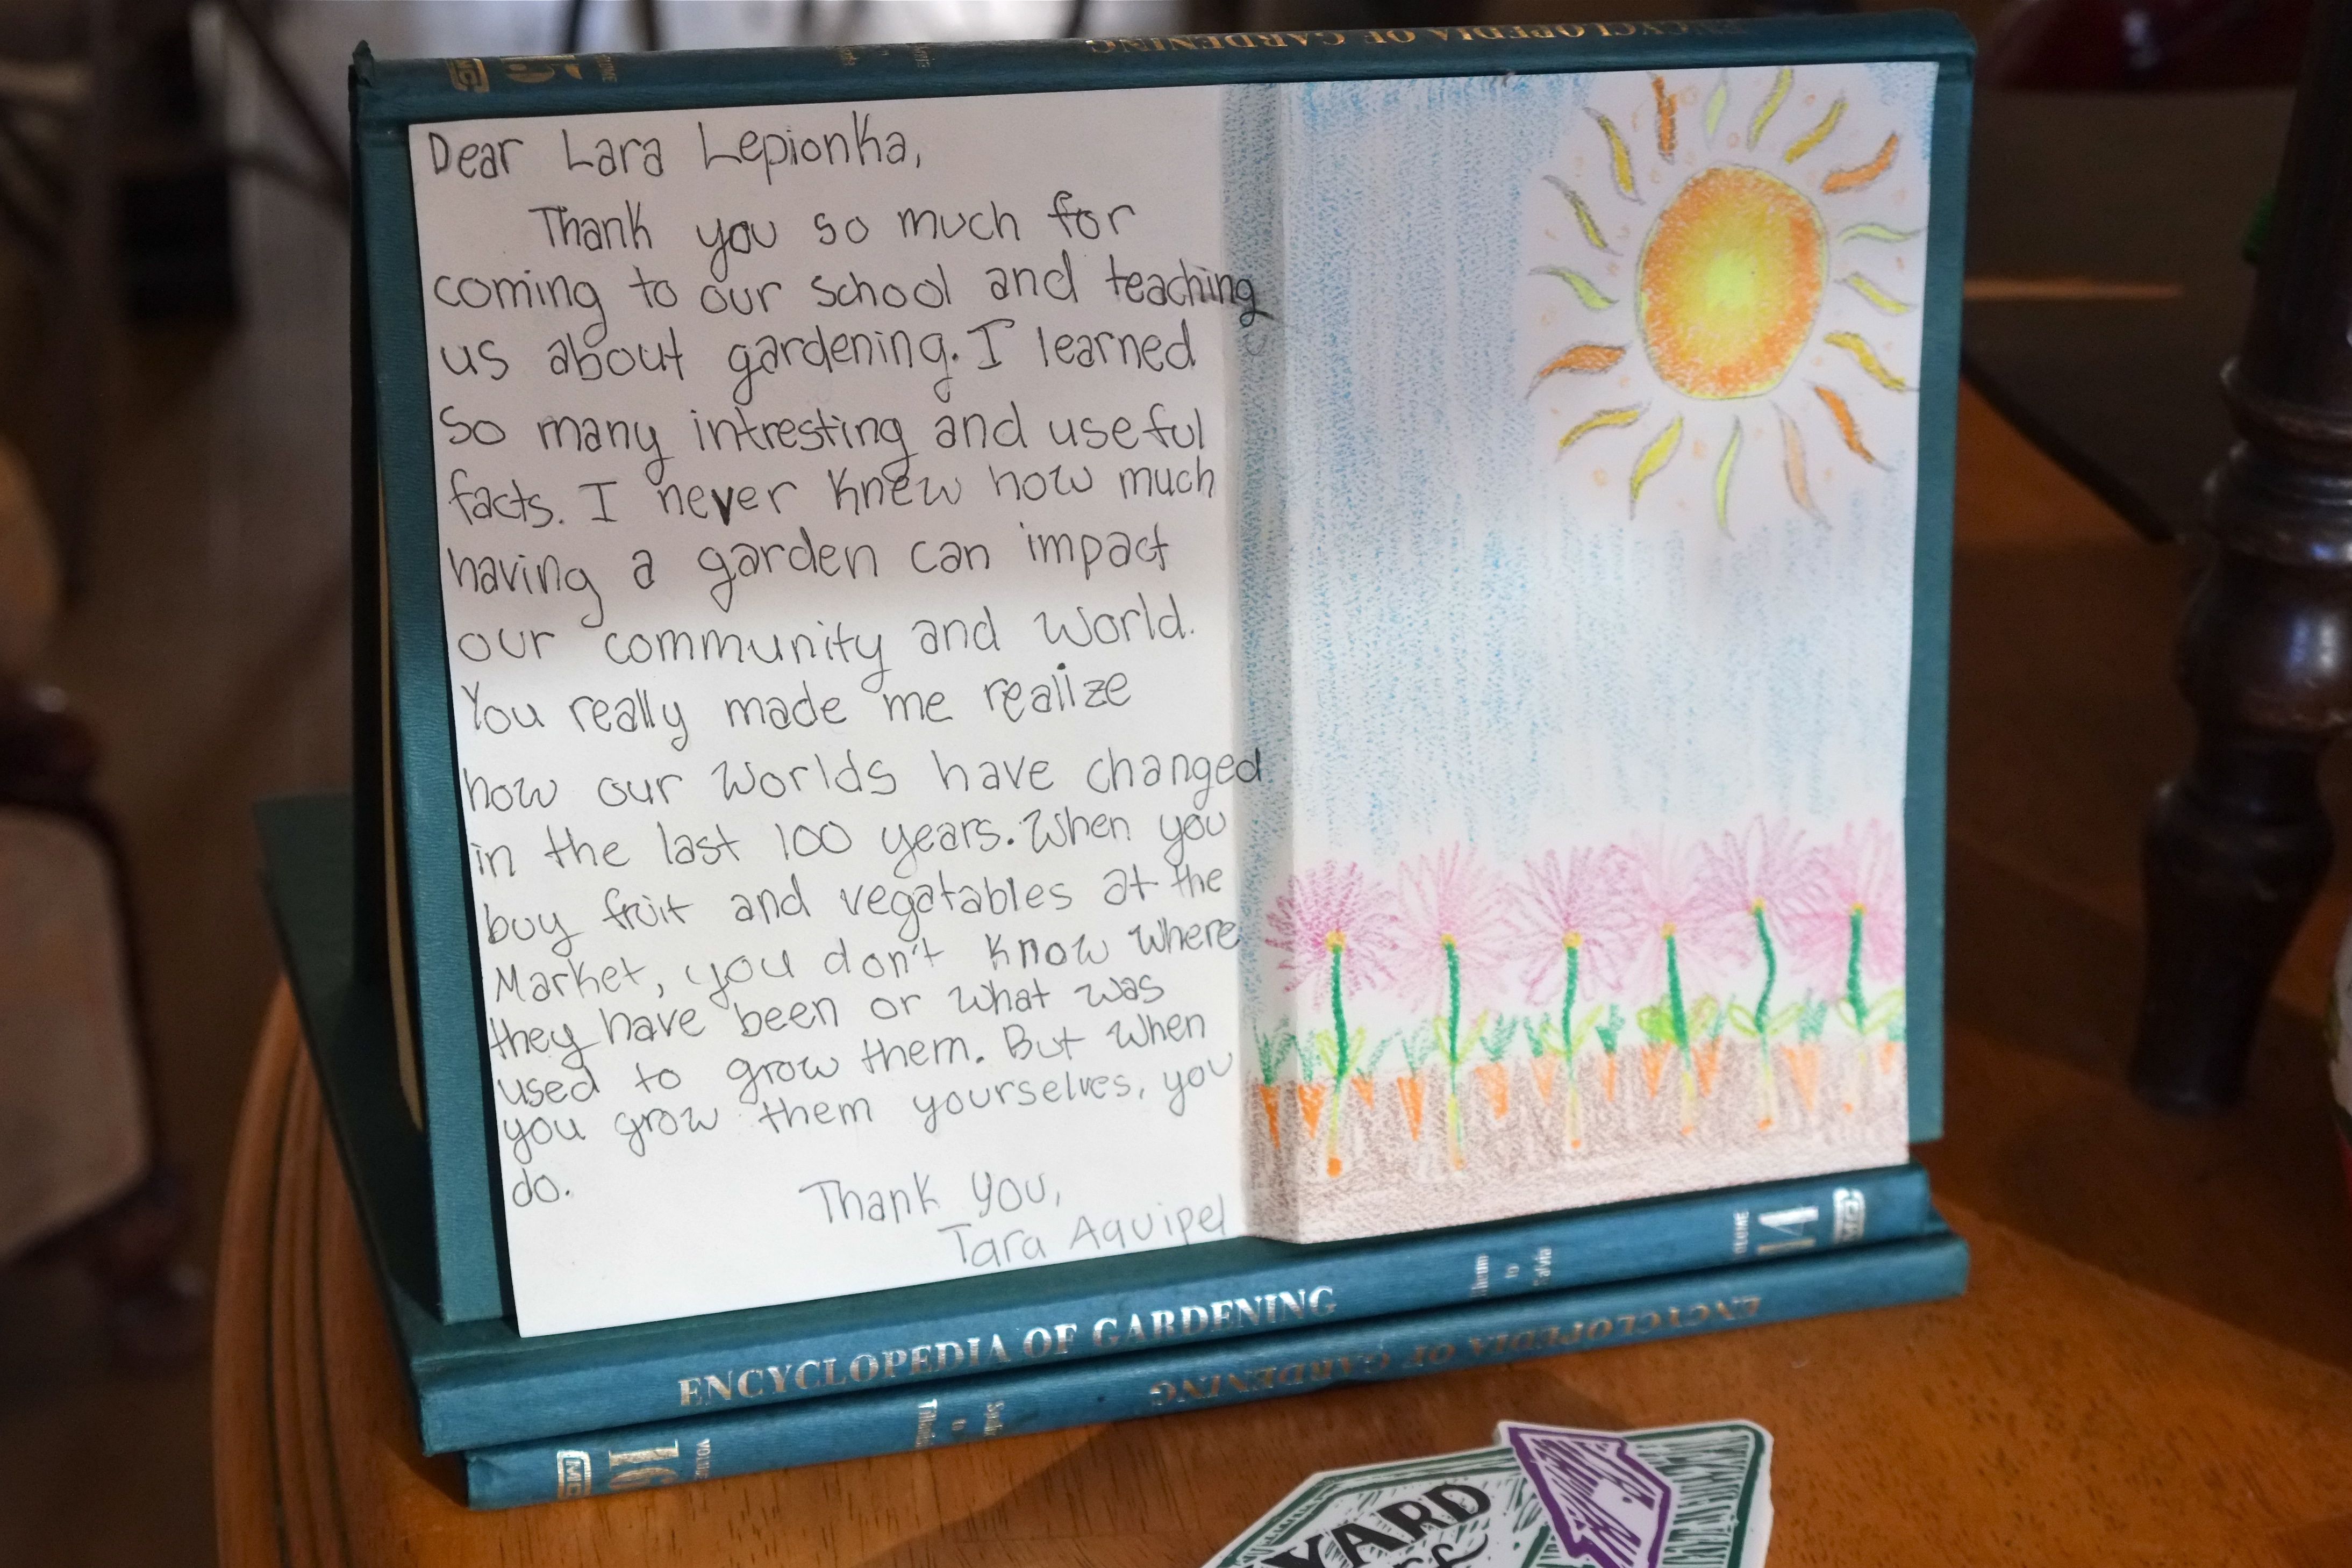 ENCYCLOPEDIA OF GARDENING
15
Dear Lara Lepionka,
Thank you so much for
coming to our school and teaching
us about gardening. I learned
so many intresting and useful
facts. I never knew how much
having a garden can impact
our community and world.
You really made me realize
how our worlds have changed
in the last 100 years. When you
buy fruit and vegatables at the
Market, you don't know where
they have been or what was
used to grow them. But when
you grow them yourselves, you
do.
Thank you,
Tara Aquipel
ENCYCLOPEDIA OF GARDENING
to
14
ENCYCLOPEDIA OF GARDENING
to
16
YARD